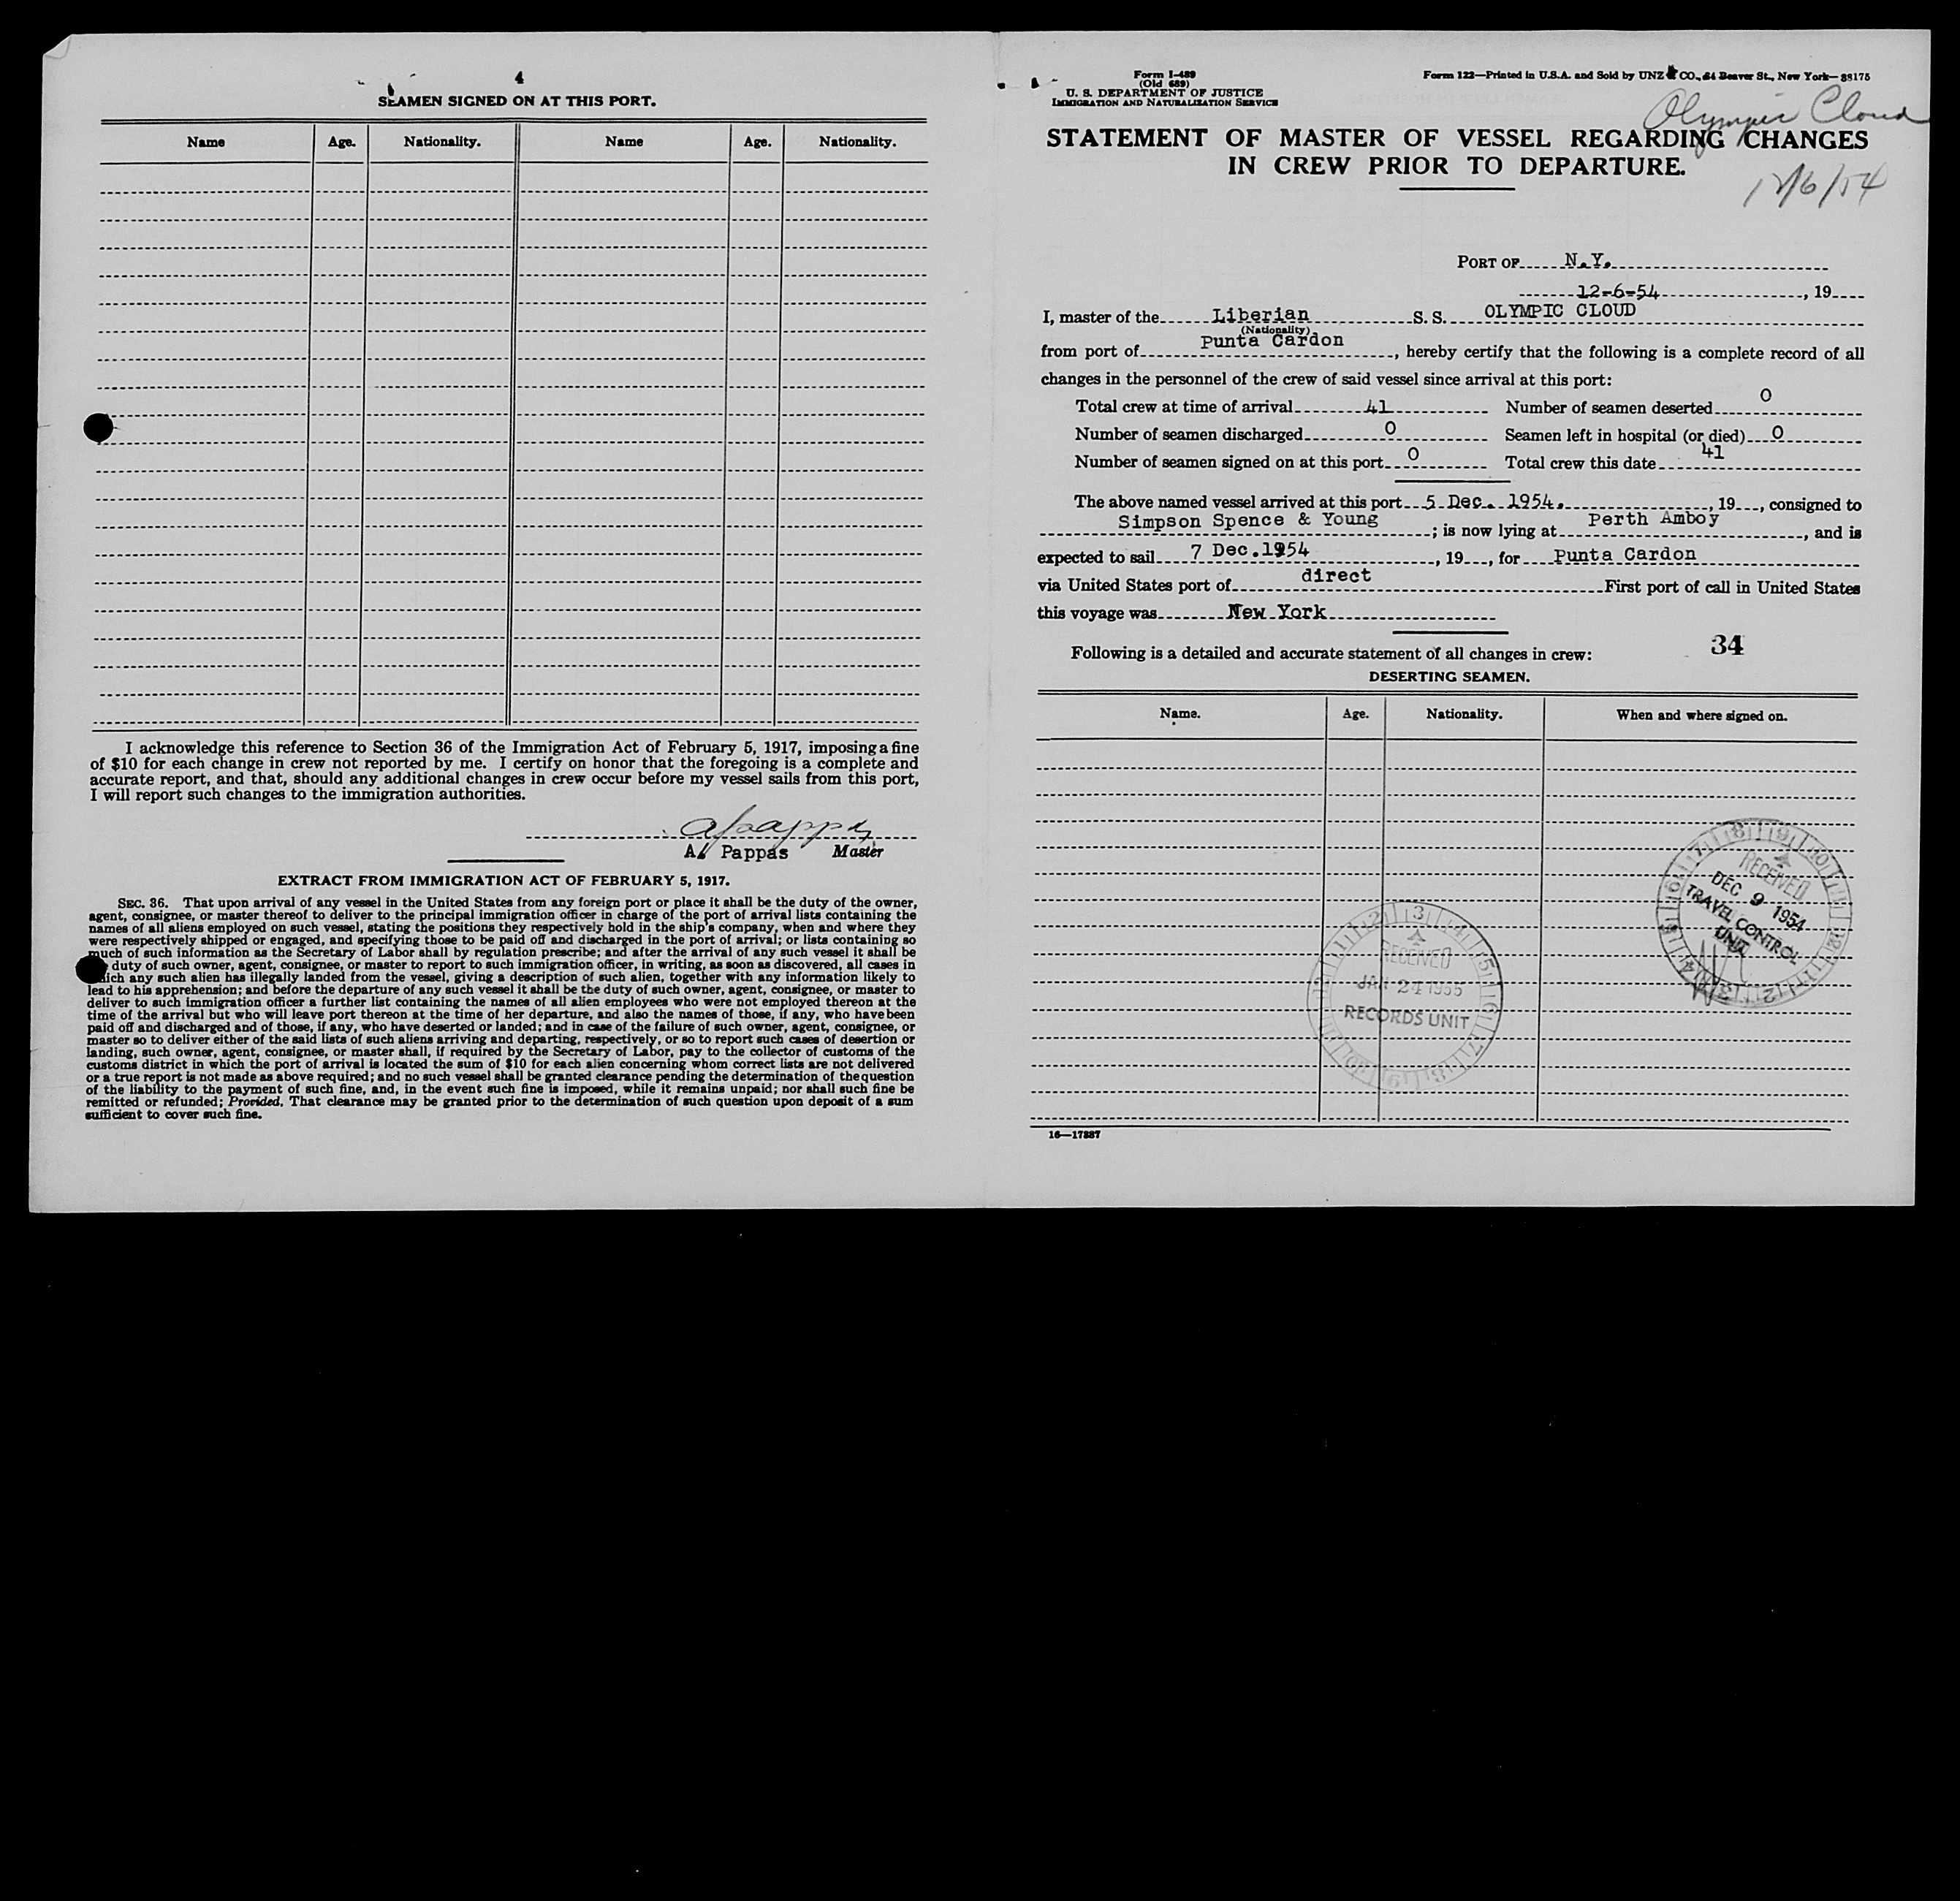 4
SEAMEN SIGNED ON AT THIS PORT.
Name Age. Nationality. Name Age. Nationality.
I acknowledge this reference to Section 36 of the Immigration Act of February 5, 1917, imposing a fine
of $10 for each change in crew not reported by me. I certify on honor that the foregoing is a complete and
accurate report, and that, should any additional changes in crew occur before my vessel sails from this port,
I will report such changes to the immigration authorities.
A. Pappas Master
EXTRACT FROM IMMIGRATION ACT OF FEBRUARY 5, 1917.
SEC. 36. That upon arrival of any vessel in the United States from any foreign port or place it shall be the duty of the owner,
agent, consignee, or master thereof to deliver to the principal immigration officer in charge of the port of arrival lists containing the
names of all aliens employed on such vessel, stating the positions they respectively hold in the ship's company, when and where they
were respectively shipped or engaged, and specifying those to be paid off and discharged in the port of arrival; or lists containing so
much of such information as the Secretary of Labor shall by regulation prescribe; and after the arrival of any such vessel it shall be
duty of such owner, agent, consignee, or master to report to such immigration officer, in writing, as soon as discovered, all cases in
which any such alien has illegally landed from the vessel, giving a description of such alien, together with any information likely to
lead to his apprehension; and before the departure of any such vessel it shall be the duty of such owner, agent, consignee, or master to
deliver to such immigration officer a further list containing the names of all alien employees who were not employed thereon at the
time of the arrival but who will leave port thereon at the time of her departure, and also the names of those, if any, who have been
paid off and discharged and of those, if any, who have deserted or landed; and in case of the failure of such owner, agent, consignee, or
master so to deliver either of the said lists of such aliens arriving and departing, respectively, or so to report such cases of desertion or
landing, such owner, agent, consignee, or master shall, if required by the Secretary of Labor, pay to the collector of customs of the
customs district in which the port of arrival is located the sum of $10 for each alien concerning whom correct lists are not delivered
or a true report is not made as above required; and no such vessel shall be granted clearance pending the determination of the question
of the liability to the payment of such fine, and, in the event such fine is imposed, while it remains unpaid; nor shall such fine be
remitted or refunded; Provided, That clearance may be granted prior to the determination of such question upon deposit of a sum
sufficient to cover such fine.
Form I-489
(Old 689)
U. S. DEPARTMENT OF JUSTICE
IMMIGRATION AND NATURALIZATION SERVICE
Form 122—Printed in U.S.A. and Sold by UNZ & CO., 24 Beaver St., New York—38175
Olympic Cloud
STATEMENT OF MASTER OF VESSEL REGARDING CHANGES
IN CREW PRIOR TO DEPARTURE.
12/6/54
PORT OF N.Y.
12-6-54, 19
I, master of the Liberian S. S. OLYMPIC CLOUD
(Nationality)
from port of Punta Cardon, hereby certify that the following is a complete record of all
changes in the personnel of the crew of said vessel since arrival at this port:
Total crew at time of arrival 41 Number of seamen deserted 0
Number of seamen discharged 0 Seamen left in hospital (or died) 0
Number of seamen signed on at this port 0 Total crew this date 41
The above named vessel arrived at this port 5 Dec. 1954., 19, consigned to
Simpson Spence & Young; is now lying at Perth Amboy, and is
expected to sail 7 Dec.1954, 19, for Punta Cardon
via United States port of direct First port of call in United States
this voyage was New York
Following is a detailed and accurate statement of all changes in crew: 34
DESERTING SEAMEN.
Name. Age. Nationality. When and where signed on.
RECEIVED
DEC 9 1954
TRAVEL CONTROL
UNIT
RECEIVED
JAN 24 1955
RECORDS UNIT
16—17887